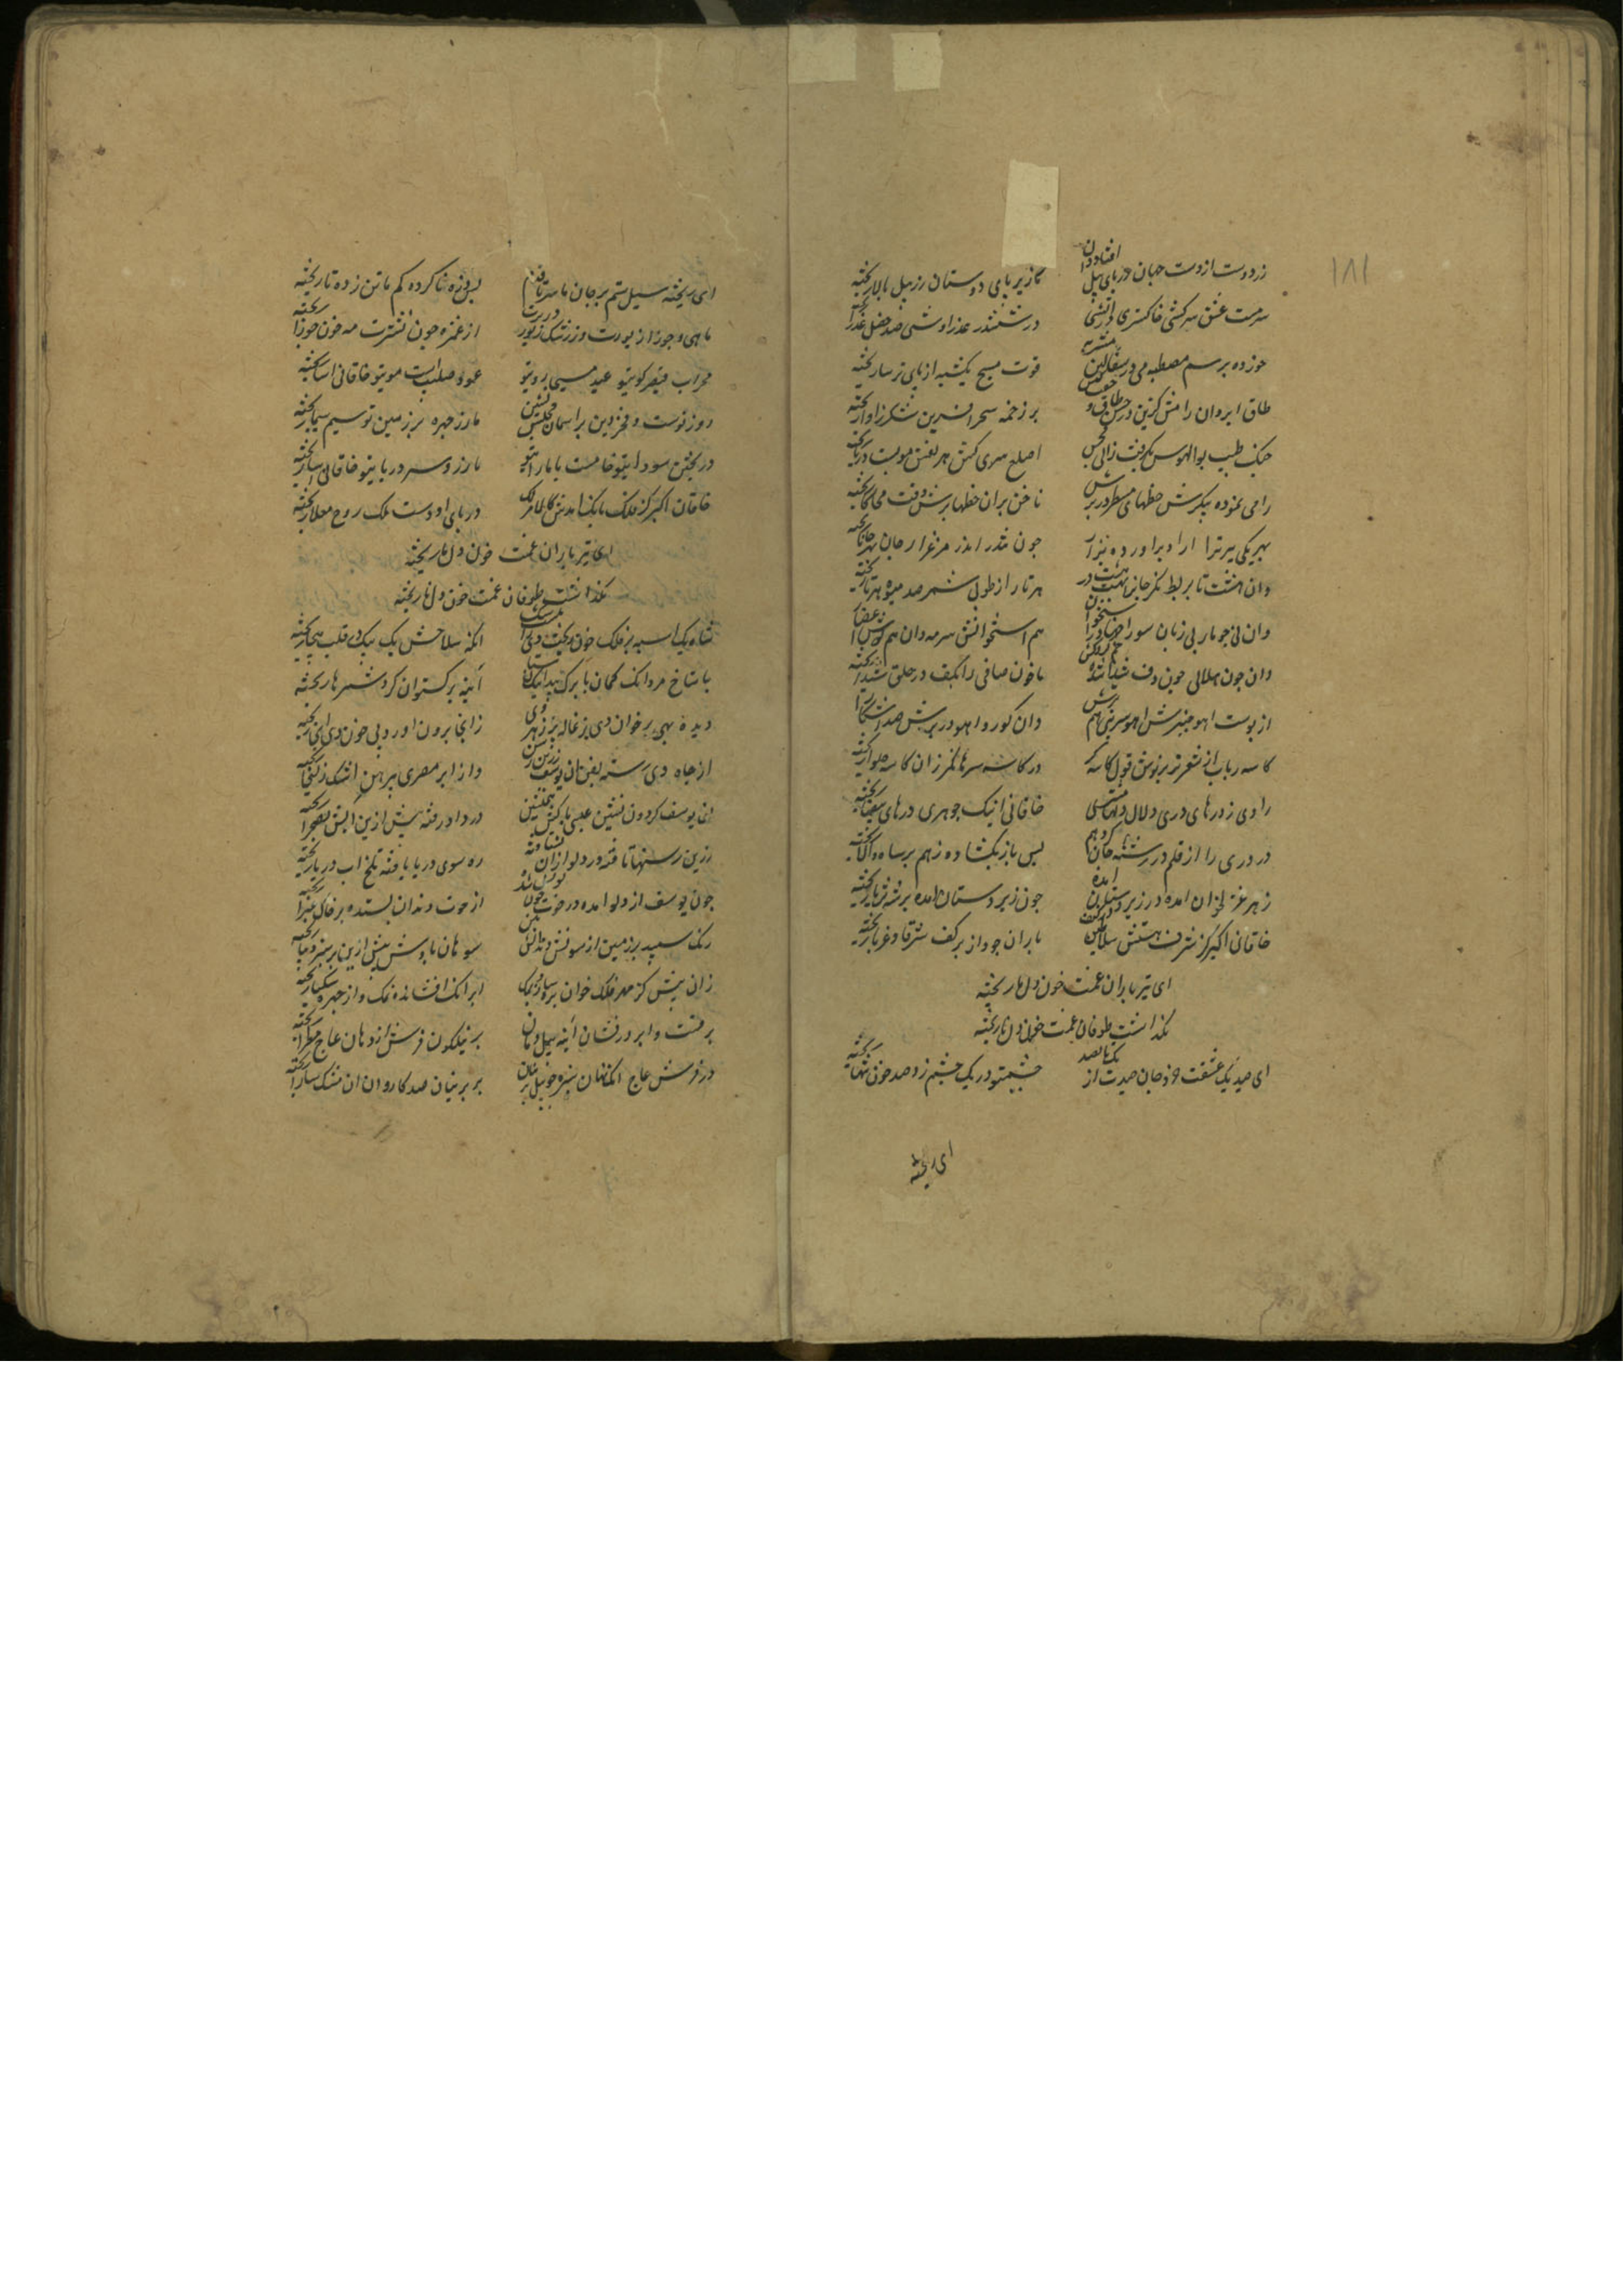 ۱۸۱
زر دوست از دست جهان در پای پیل افتاده دان
ما زیر پای دوستان زر پیل بالا ریخته
سرمست عشق سرکشی خاکستری در آتشی
در ششدر عذرا وشی صد خصل عذرا ریخته
خورده برسم مصطبه می در سفالین مشربه
قوت مسیح یکشبه از پای ترسا ریخته
طاق ابروان رامش کزین در حسن طاق و جفت کین
بر زخمه سحر افرین شکر ز اوا ریخته
چنک طبیب بوالهوس بکرفته زالی مجس
اصلع سری کش هر نفس مویست در پا ریخته
ربعی نموده پیکرش خطهای مسطر در برش
ناخن بران خطها برش وقت محاکا ریخته
بربط کری
جون
وان هشت تا بربط نکر جانرا بهشت هشت در
هر تار از طوبی شمر صد میوه هر تا ریخته
وان نی جو مار بی زبان سوراخها در استخوان
هم استخوانش سرمه دان هم کوشت ز اعضا ریخته
وان جون هلالی جوبدف شیدا شده خم کرده کف
ما خون صافی را بکف در حلق شیدا ریخته
از پوست اهو چنبرش اهو سرینی همبرش
وان کور و اهو در برش صید اشکارا ریخته
کاسه رباب از شعر تر بر نوش قول کاسه کر
در کاسه سرها نکر زان کاسه حلوا ریخته
راوی ز درهای دری دلال و دلها مشتری
خاقانی اینک جوهری درهای بیضا ریخته
در دری را از قلم در رشته جان کرده بهم
پس باز بکشاده ز هم بر شاه والا ریخته
زهره غزل خوان امده در زیر و دستان امده
جون زیر دستان امده بر شه ثریا ریخته
خاقانی اکبر کز شرف هستش سلاطین در کنف
باران جود از ابر کف شرقا و غربا ریخته
ای تیر باران غمت خون دل ما ریخته
نکذاشت طوفان غمت خون دل ما ریخته
ای صید یک عشقت دو جان صیدت از یک تا صد
چشمت تو در یک چشم زد صد خون تنها ریخته
ای ریخته
ای ریخته سیل ستم بر جان ما سر تا قدم
پس ناکرده کم ما تن زده تا ریخته
ماهی و جوزا زیورت وز رشک زیور در برت
از غمزه جون نشترت مه خون جوزا ریخته
محراب قیصر کوی تو عید مسیحا روی تو
عود صلیبت موی تو خاقانی اسا ریخته
روز نوست و فخر دین بر اسمان مجلس نشین
ما زر چهره بر زمین تو سیم سیما ریخته
در پختن سودای تو خامست با ما رای تو
ما زر و سر در پای تو خاقانی اسا ریخته
خاقان اکبر کز فلک بانک امدش کالامر لک
در پای او دست ملک روح معلا ریخته
ای تیر باران غمت خون دل ما ریخته
نکذاشت طوفان غمت خون دل ما ریخته
شاه یک اسبه بر فلک خون ریخت دی را نیست شک
انکه سلاحش یک بیک در قلب هیجا ریخته
با شاخ سرو انک کمان با برک بید اینک سنان
ائینه برکستوان کرد شمرها ریخته
دیده بهی بر خوان دی بزغاله پر زهر وی
زانجا برون اورد پی خون دی انجا ریخته
از چاه دی رسته بفن ان یوسف زرین رسن
وز ابر مصری پیرهن اشک زلیخا ریخته
ان یوسف کردون نشین عیسی پاکش همنشین
در دلو رفته پیش ازین ابش بصحرا ریخته
زرین رسنها بافته در دلو ازان بشتافته
ره سوی دریا یافته تلخ اب دریا ریخته
جون یوسف از دلو امده در حوت جون یونس شده
از حوت دندان بستده بر خاک غبرا ریخته
رنک سپید بر زمین از سونش دندانش بین
سوهان بادش پیش ازین بر سبز دیبا ریخته
زان پیش کز مهر فلک خوان بره سازد ملک
ابر انک افشانده نمک وز چهره سکبا ریخته
برقست و ابر درفشان ائینه پیل دمان
بر نیلکون فرش از دهان عاج مطرا ریخته
در فرش عاج انک نهان سبزه جو نیل پرنیان
بر پرنیان صد کاروان ان مشک سارا ریخته